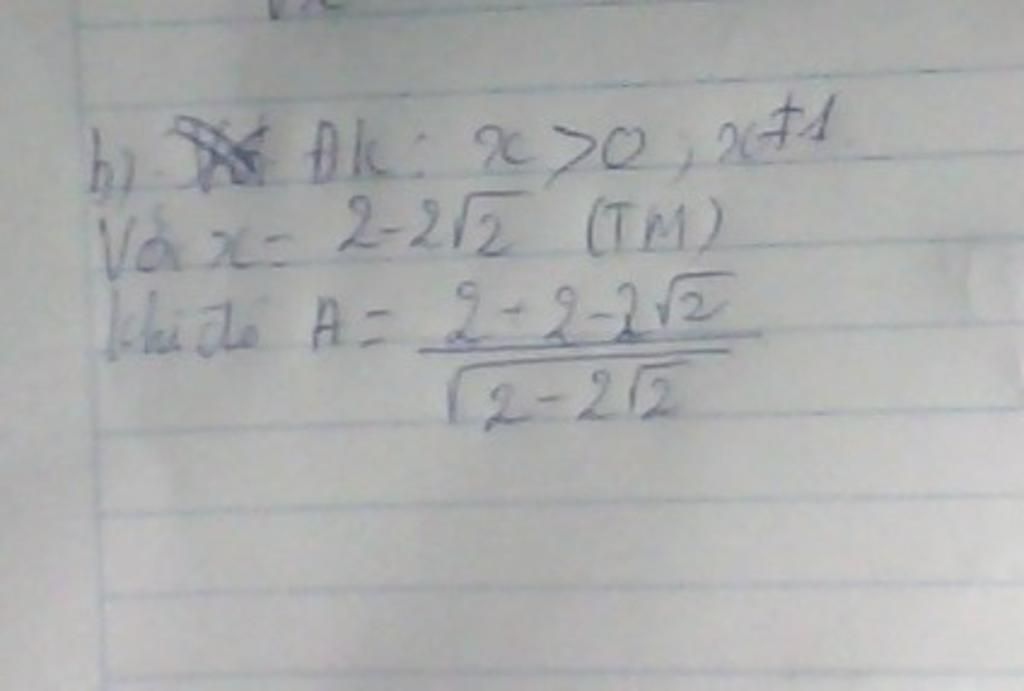 b) ĐK: x > 0 ; x ≠ 1
Với x = 2-2√2 (TM)
khi đó A = \frac{2-2-2√2}{\sqrt{2-2√2}}